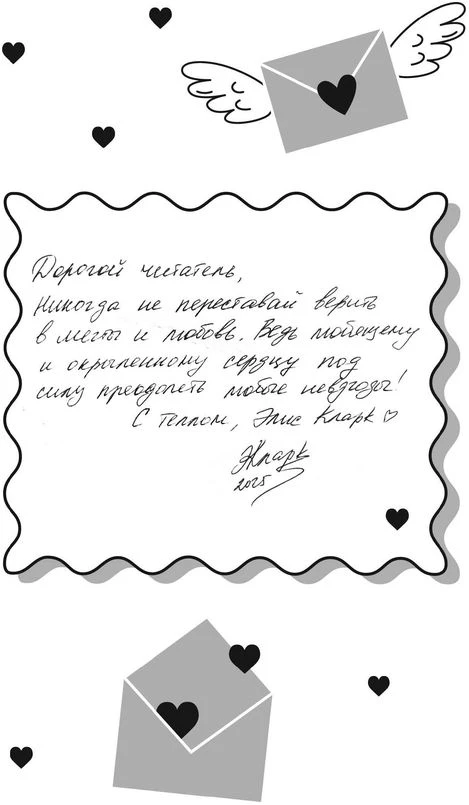 Дорогой читатель,
Никогда не переставай верить
в мечты и любовь. Ведь любящему
и окрыленному сердцу под
силу преодолеть любые невзгоды!
С теплом, Элис Кларк ♡
ЭКларк
2025